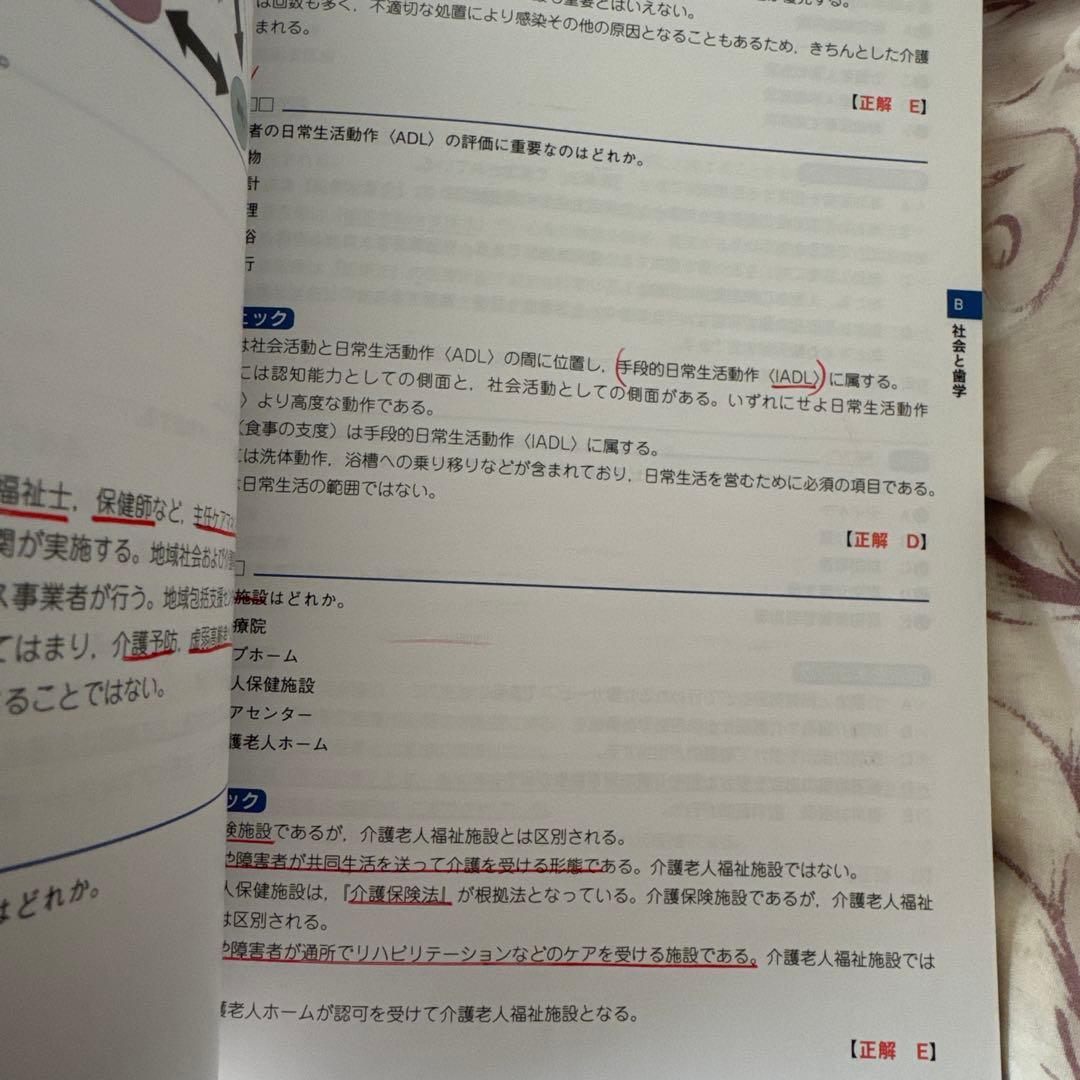 は回数も多く，不適切な処置により感染その他の原因となることもあるため，きちんとした介護
まれる。
【正解 E】
者の日常生活動作〈ADL〉の評価に重要なのはどれか。
物
計
理
浴
行
ェック
は社会活動と日常生活動作〈ADL〉の間に位置し，手段的日常生活動作〈IADL〉に属する。
には認知能力としての側面と，社会活動としての側面がある。いずれにせよ日常生活動作
〉より高度な動作である。
（食事の支度）は手段的日常生活動作〈IADL〉に属する。
には洗体動作，浴槽への乗り移りなどが含まれており，日常生活を営むために必須の項目である。
日常生活の範囲ではない。
【正解 D】
施設はどれか。
療院
プホーム
人保健施設
アセンター
護老人ホーム
ック
険施設であるが，介護老人福祉施設とは区別される。
や障害者が共同生活を送って介護を受ける形態である。介護老人福祉施設ではない。
人保健施設は，『介護保険法』が根拠法となっている。介護保険施設であるが，介護老人福祉
は区別される。
や障害者が通所でリハビリテーションなどのケアを受ける施設である。介護老人福祉施設では
護老人ホームが認可を受けて介護老人福祉施設となる。
【正解 E】
B
社会と歯学
福祉士，保健師など，主任ケアマネ
関が実施する。地域社会および
ス事業者が行う。地域包括支援セン
てはまり，介護予防，虚弱高齢者
ることではない。
はどれか。